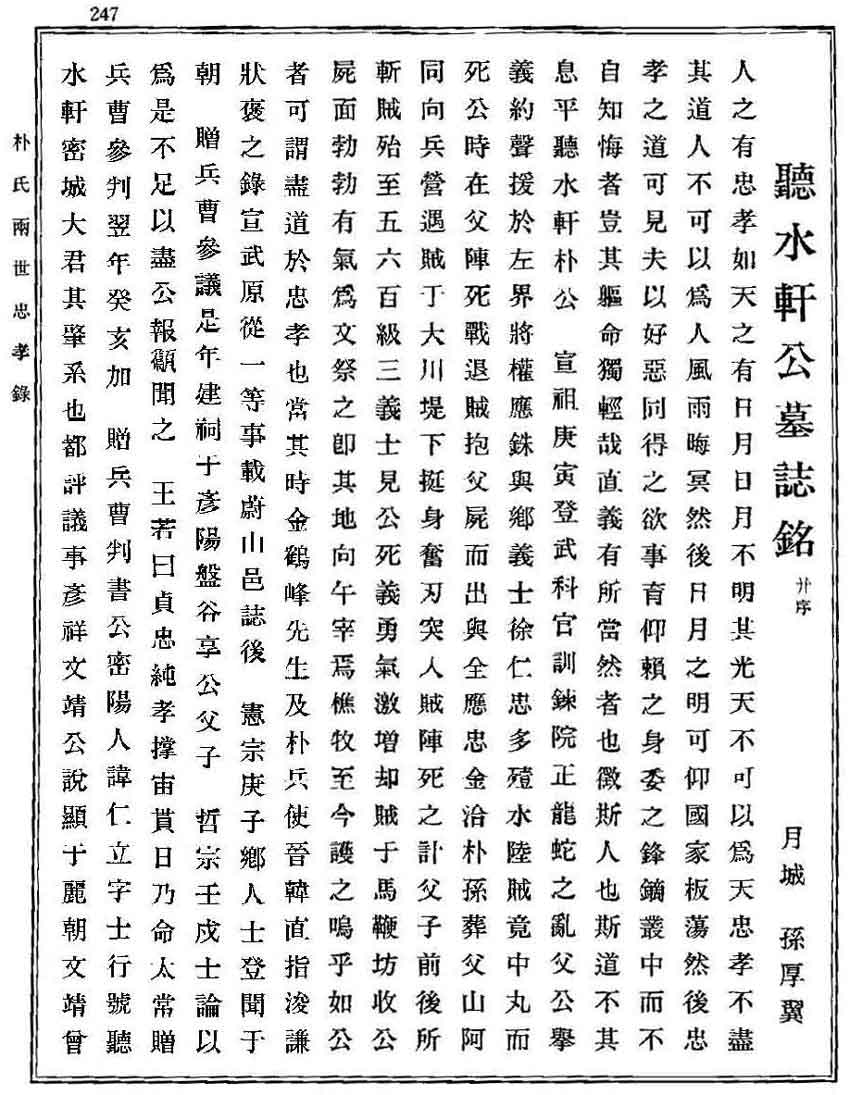 247
聽水軒公墓誌銘 幷序
月城 孫厚翼
人之有忠孝如天之有日月日月不明其光天不可以爲天忠孝不盡
其道人不可以爲人風雨晦冥然後日月之明可仰國家板蕩然後忠
孝之道可見夫以好惡同得之欲事育仰賴之身委之鋒鏑叢中而不
自知悔者豈其軀命獨輕哉直義有所當然者也徵斯人也斯道不其
息乎聽水軒朴公 宣祖庚寅登武科官訓鍊院正龍蛇之亂父公擧
義約聲援於左界將權應銖與鄕義士徐仁忠多殪水陸賊竟中丸而
死公時在父陣死戰退賊抱父屍而出與全應忠金洽朴孫葬父山阿
同向兵營遇賊于大川堤下挺身奮刃突入賊陣死之計父子前後所
斬賊殆至五六百級三義士見公死義勇氣激增却賊于馬鞭坊收公
屍面勃勃有氣爲文祭之卽其地向午宰焉樵牧至今護之嗚乎如公
者可謂盡道於忠孝也當其時金鶴峰先生及朴兵使晉韓直指浚謙
狀褒之錄宣武原從一等事載蔚山邑誌後 憲宗庚子鄕人士登聞于
朝 贈兵曹參議是年建祠于彥陽盤谷享公父子 哲宗壬戌士論以
爲是不足以盡公報籲聞之 王若曰貞忠純孝撑宙貫日乃命太常贈
兵曹參判翌年癸亥加 贈兵曹判書公密陽人諱仁立字士行號聽
水軒密城大君其肇系也都評議事彥祥文靖公說顯于麗朝文靖曾
朴氏兩世忠孝錄